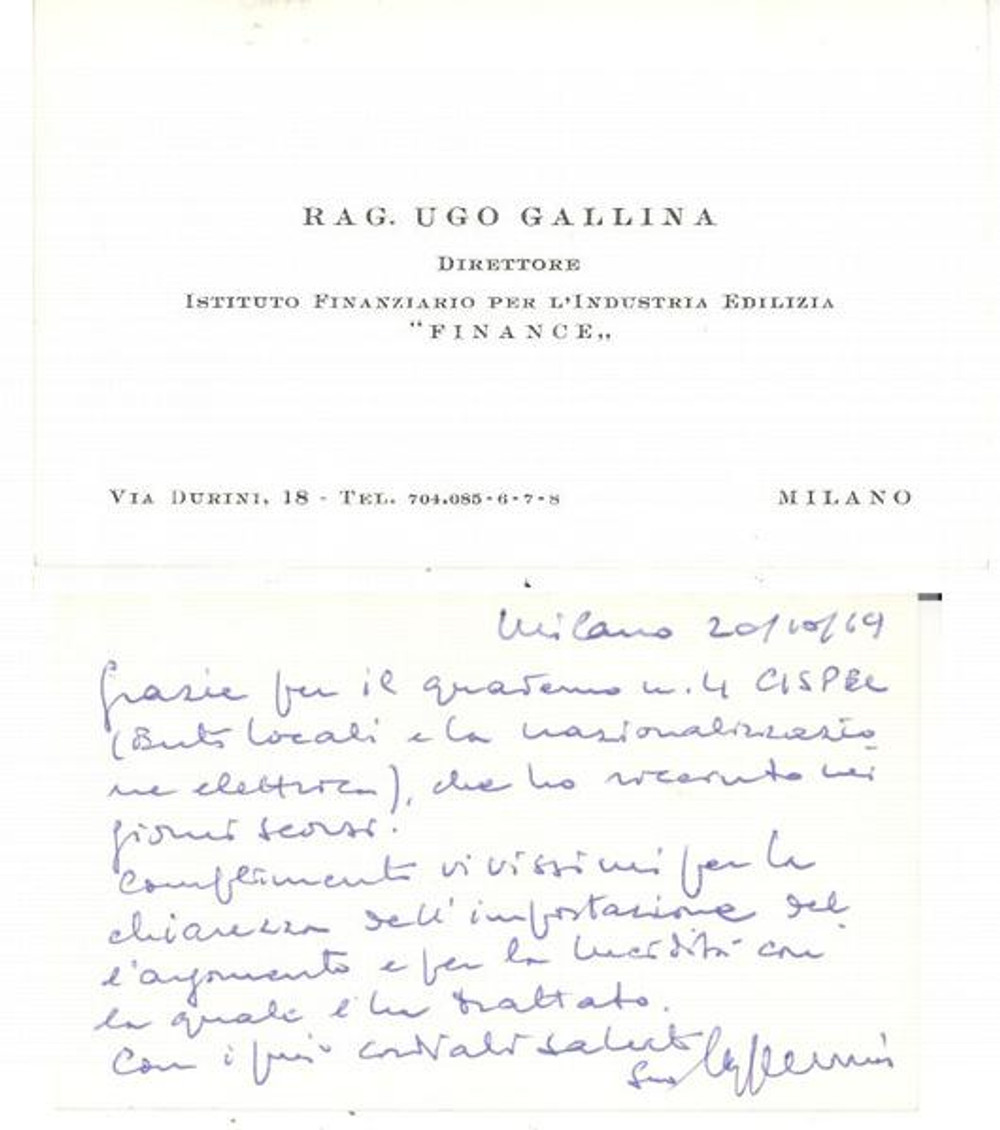 RAG. UGO GALLINA
DIRETTORE
ISTITUTO FINANZIARIO PER L'INDUSTRIA EDILIZIA
“FINANCE„
VIA DURINI, 18 - TEL. 704.085-6-7-8 MILANO
Milano 20/10/69
Grazie per il quaderno n. 4 CISPEL
(Enti locali e la nazionalizzazio
ne elettrica), che ho ricevuto nei
giorni scorsi.
Complimenti vivissimi per la
chiarezza dell'impostazione del
l'argomento e per la lucidità con
la quale l'ha trattato.
Con i più cordiali saluti
Suo